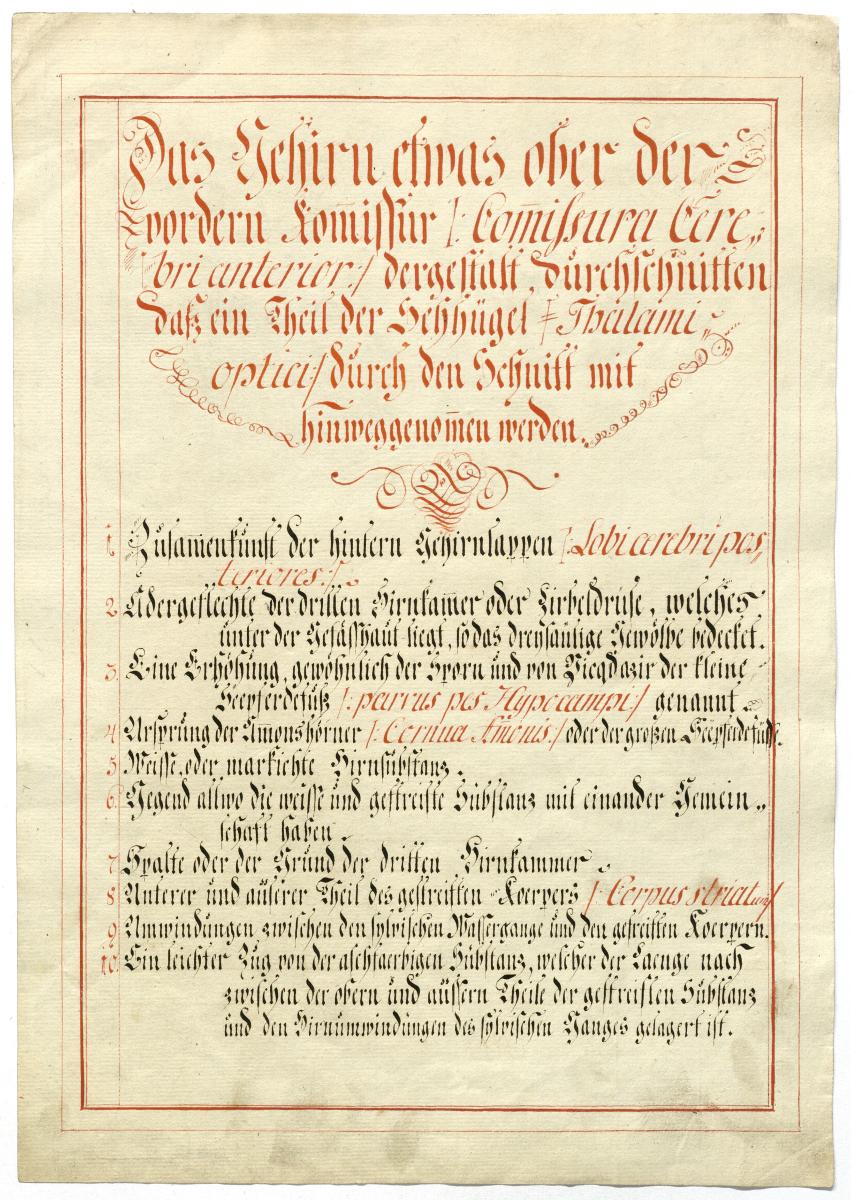 Das Gehirn etwas ober der
vordern Kom̅issur /: Com̅issura Cere„
bri anterior :/ dergestalt durchschnitten
daß ein Theil der Sehhügel /: Thalami
optici :/ durch den Schnitt mit
hinweggenom̅en werden.
1. Zusam̅enkunft der hintern Gehirnlappen /: Lobi cerebri pos„
teriores :/
2. Adergeflechte der dritten Hirnkam̅er oder Zirbeldrüse, welches
unter der Gefässhaut liegt, so das dreysäulige Gewölbe bedecket.
3. Eine Erhöhung, gewöhnlich der Sporn und von Vieqdazir der kleine
Seepferdefuß /: parrus pes Hypocampi :/ genannt
4. Ursprung der Am̅onshörner /: Cornua Am̅onis :/ oder der großen Seepferdefüsse.
5. Weisse, oder markichte Hirnsubstanz.
6. Gegend allwo die weisse und gestreifte Substanz mit einander Gemein„
schaft haben.
7. Spalte oder der Grund der dritten Hirnkammer
8. Unterer und äuserer Theil des gestreiften Koerpers /: Corpus striatum :/
9. Umwindungen zwischen den sylvischen Wassergange und den gestreiften Koerpern.
10. Ein leichter Zug von der aschfaerbigen Substanz, welcher der Laenge nach
zwischen der obern und äussern Theile der gestreiften Substanz
und den Hirnumwindungen des sylvischen Ganges gelagert ist.